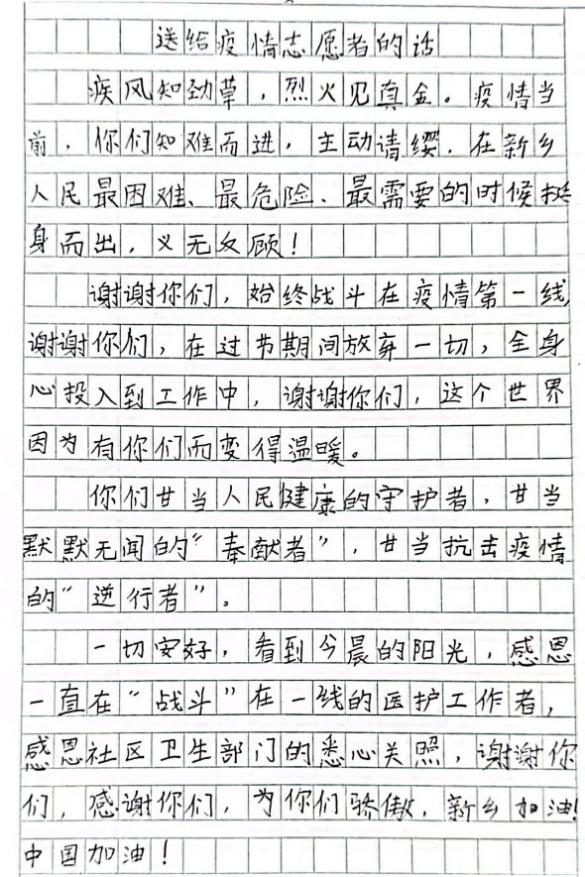 送给疫情志愿者的话
疾风知劲草，烈火见真金。疫情当
前，你们知难而进，主动请缨，在新乡
人民最困难、最危险、最需要的时候挺
身而出，义无反顾！
谢谢你们，始终战斗在疫情第一线，
谢谢你们，在过节期间放弃一切，全身
心投入到工作中，谢谢你们，这个世界
因为有你们而变得温暖。
你们甘当人民健康的守护者，甘当
默默无闻的“奉献者”，甘当抗击疫情
的“逆行者”。
一切安好，看到今晨的阳光，感恩
一直在“战斗”在一线的医护工作者，
感恩社区卫生部门的悉心关照，谢谢你
们，感谢你们，为你们骄傲，新乡加油！
中国加油！